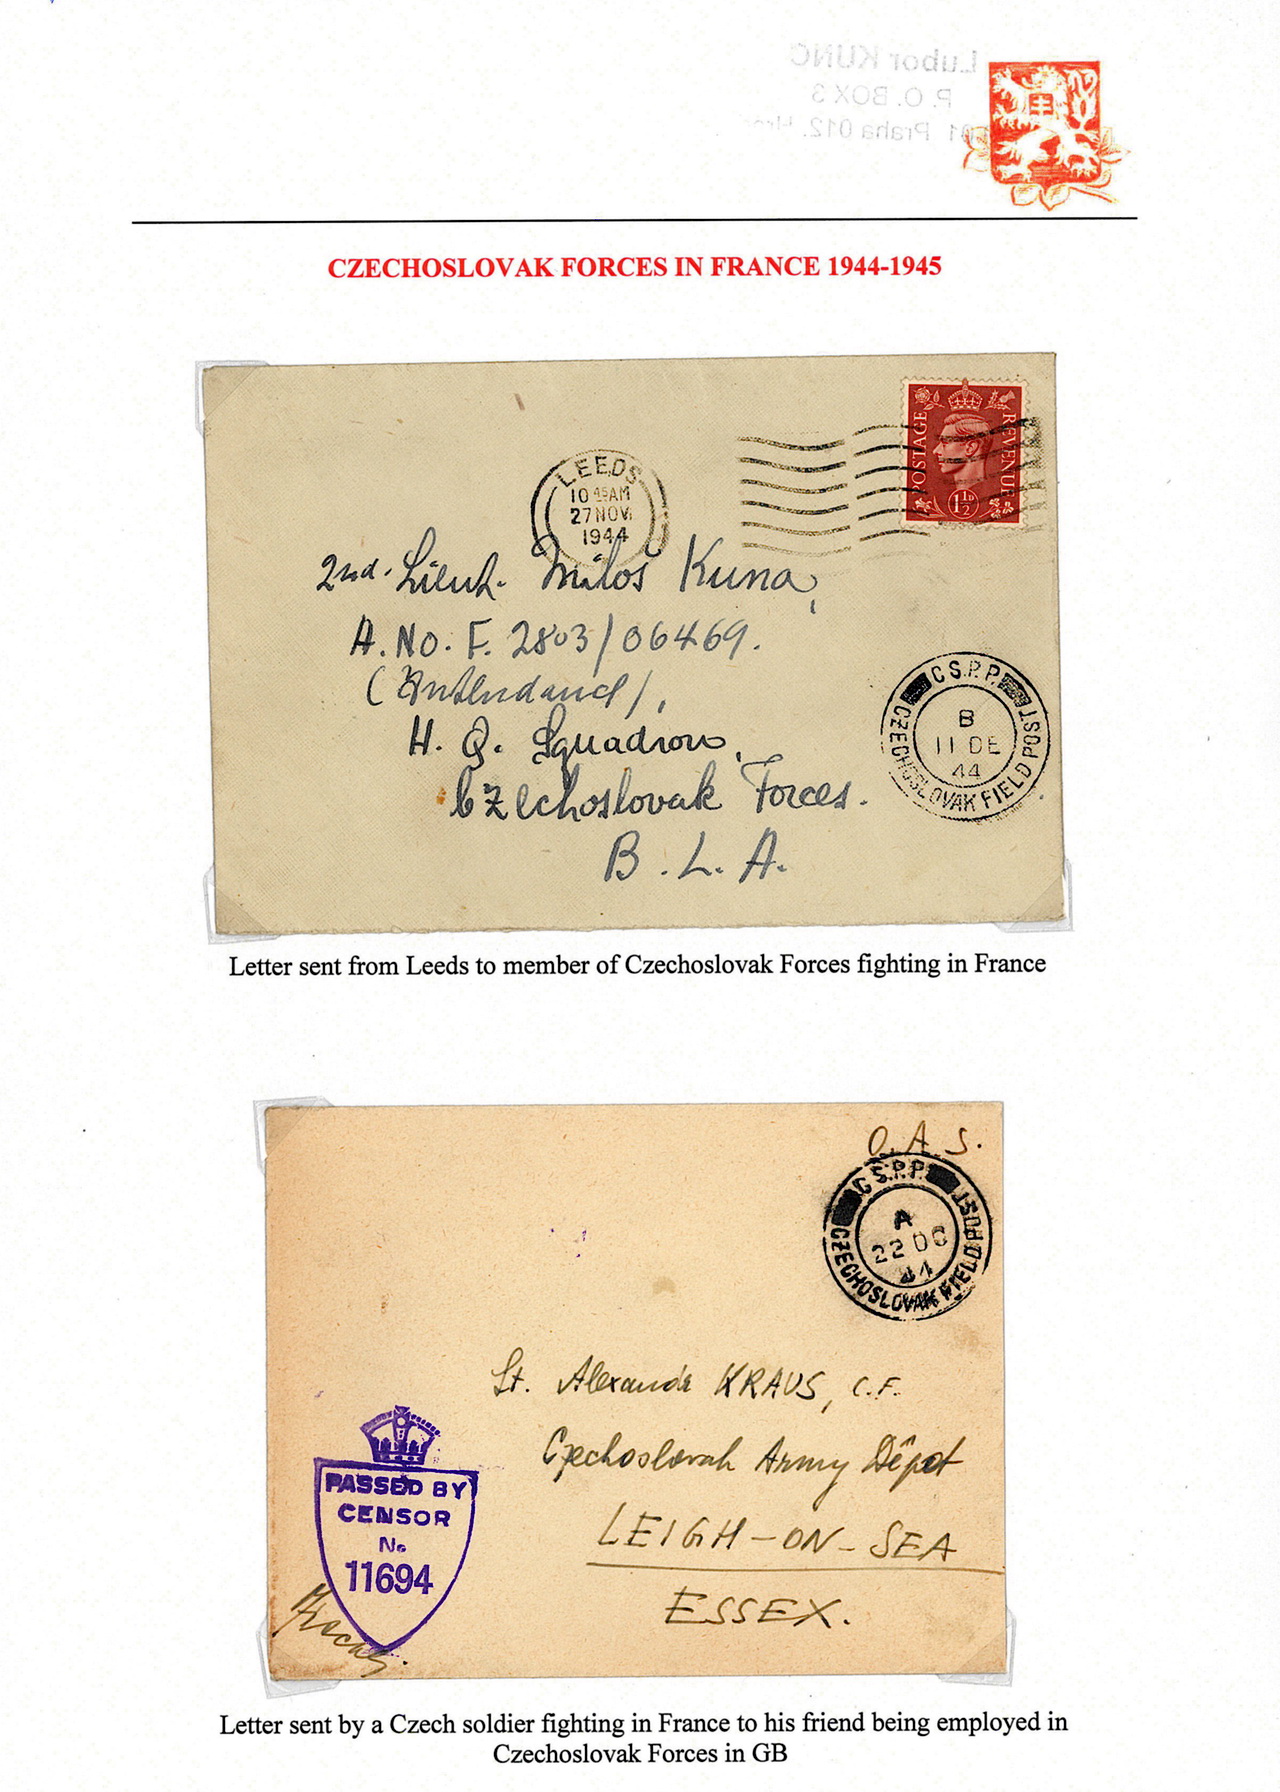 Lubor KUNC
P.O. BOX 3
01 Praha 012,
CZECHOSLOVAK FORCES IN FRANCE 1944-1945
POSTAGE REVENUE
1½D
LEEDS
10 45 AM
27 NOV
1944
2nd. Lieut. Miloš Kuna,
A. No. F. 2803/06469.
(Intendance),
H. Q. Squadron,
Czechoslovak Forces.
B. L. A.
C S.P.P.
CZECHOSLOVAK FIELD POST
B
11 DE
44
Letter sent from Leeds to member of Czechoslovak Forces fighting in France
O.A.S.
C S.P.P.
CZECHOSLOVAK FIELD POST
A
22 DC
44
Lt. Alexandr KRAUS, C.F.
Czechoslovak Army Dêpot
LEIGH-ON-SEA
ESSEX.
PASSED BY
CENSOR
No
11694
Letter sent by a Czech soldier fighting in France to his friend being employed in
Czechoslovak Forces in GB